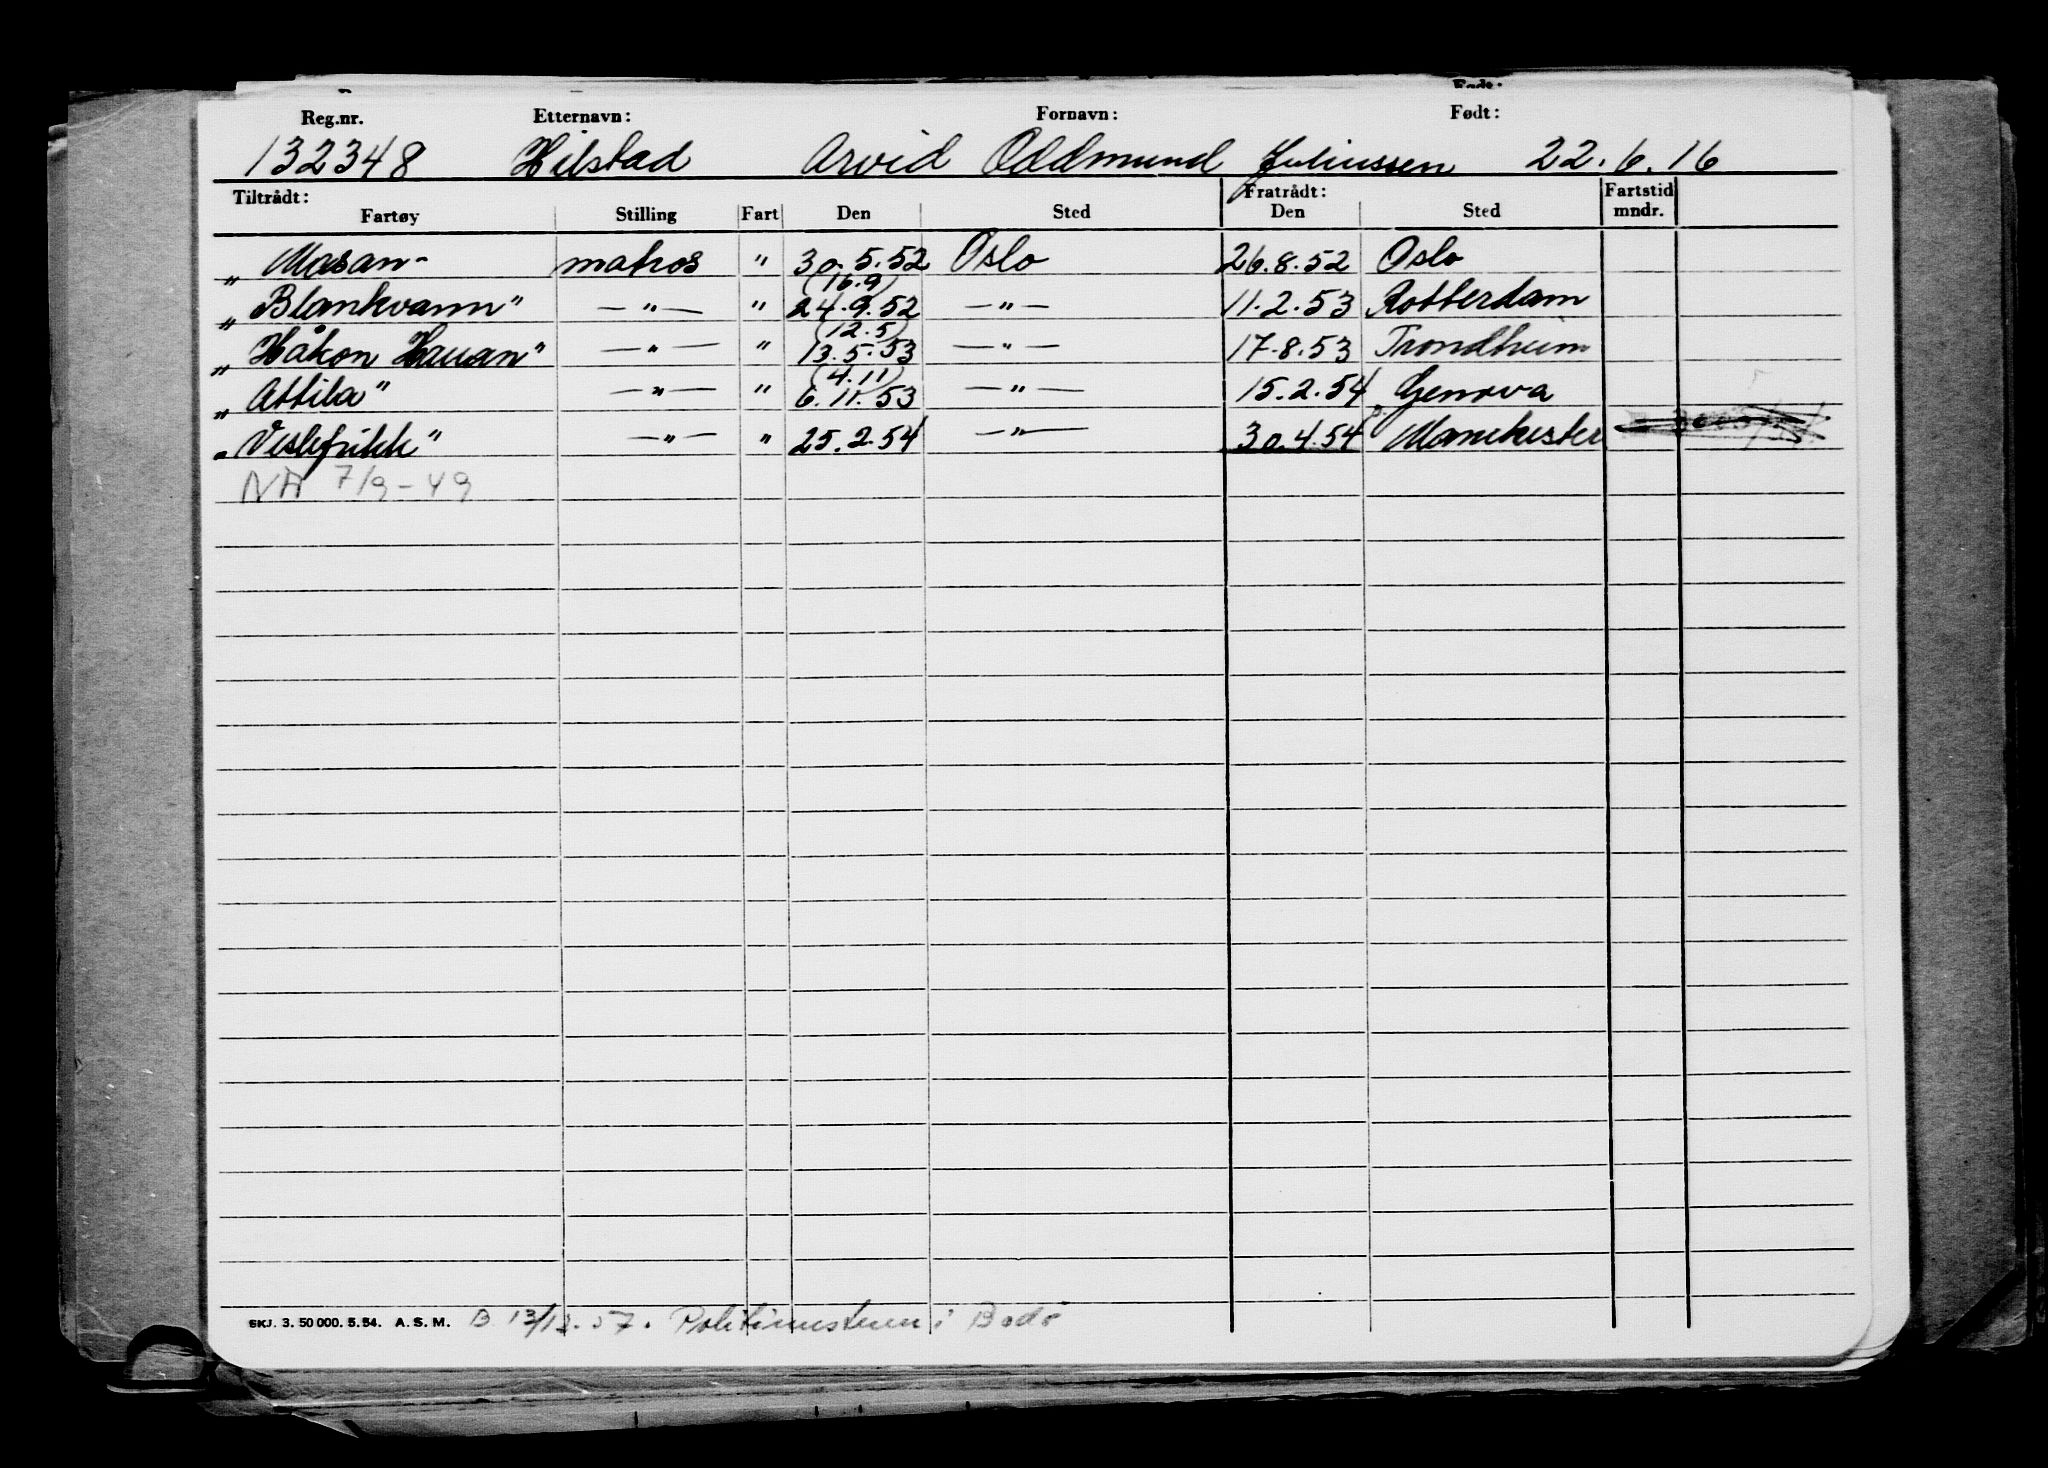 Reg.nr. Etternavn: Fornavn: Født:
132348 Hilstad Arvid Oddmund Juliussen 22.6.16
Tiltrådt: Fratrådt: Fartstid
Fartøy Stilling Fart Den Sted Den Sted mndr.
„ Masan- matros " 30.5.52 Oslo 26.8.52 Oslo
(16.9)
„ Blankvann" —"— " 24.9.52 —"— 11.2.53 Rotterdam
(12.5)
„ Håkon Hauan" —"— " 13.5.53 —"— 17.8.53 Trondheim
(4.11)
„ Attila" —"— " 6.11.53 —"— 15.2.54 Genova
„ Veslefrikk" —"— " 25.2.54 —"— 30.4.54 Manchester
NA 7/9-49
SKJ. 3. 50 000. 5.54. A. S. M. B 13/12.57. Politimesteren i Bodø